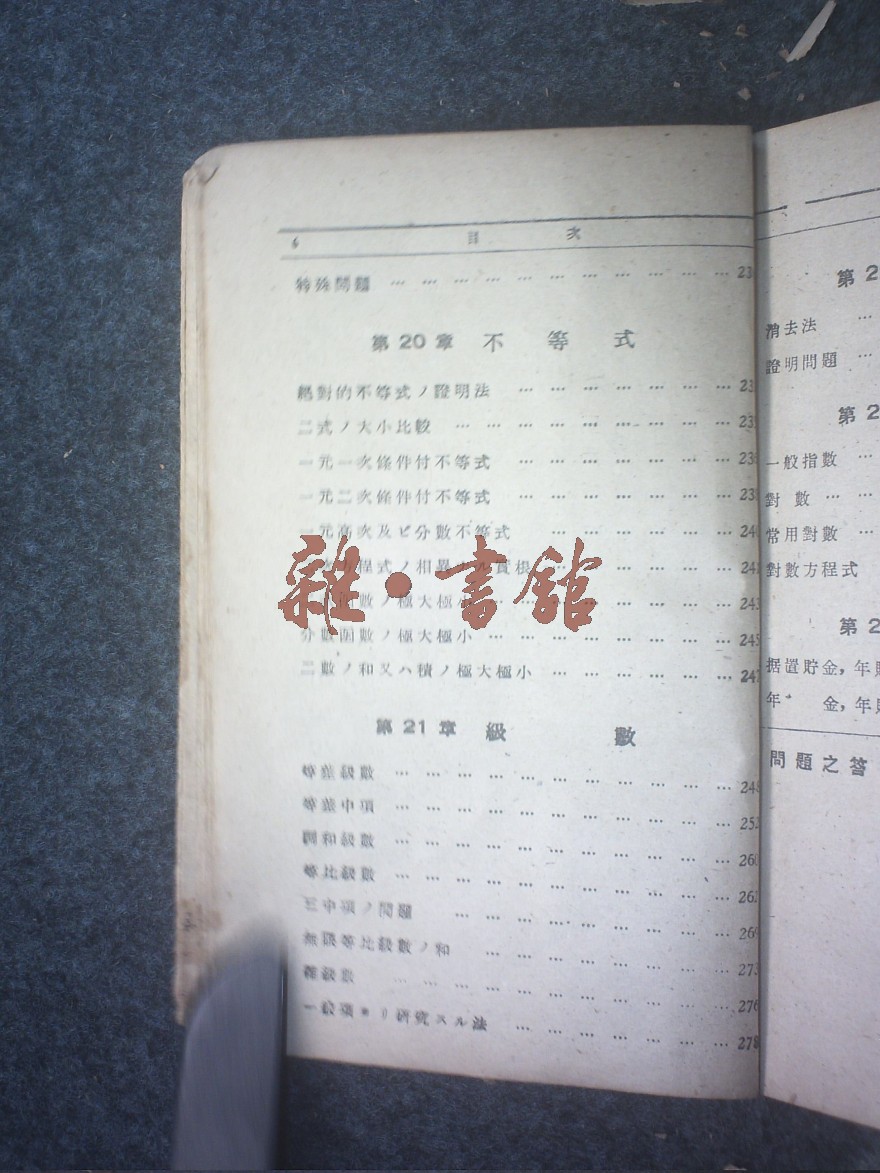 6 目次
特殊問題 … … … … … … … … … … … 23
第20章 不等式
絕對的不等式ノ證明法 … … … … … … … 23
二式ノ大小比較 … … … … … … … … … 235
一元一次條件付不等式 … … … … … … … 236
一元二次條件付不等式 … … … … … … … 238
一元高次及ビ分數不等式 … … … … … … 240
方程式ノ相異ナル實根 … … … … … … 242
函數ノ極大極小 … … … … … … … … 243
分數函數ノ極大極小 … … … … … … … … 245
二數ノ和又ハ積ノ極大極小 … … … … … … 247
第21章 級數
等差級數 … … … … … … … … … … … 248
等差中項 … … … … … … … … … … … 252
調和級數 … … … … … … … … … … … 260
等比級數 … … … … … … … … … … … 262
三中項ノ問題 … … … … … … … … … 269
無限等比級數ノ和 … … … … … … … … 273
雜級數 … … … … … … … … … … … 276
一般項ヨリ研究スル法 … … … … … … … 278
雜·書館
第2
消去法 …
證明問題 …
第2
一般指數 …
對數 … …
常用對數 …
對數方程式
第2
据置貯金,年
年金,年
問題之答